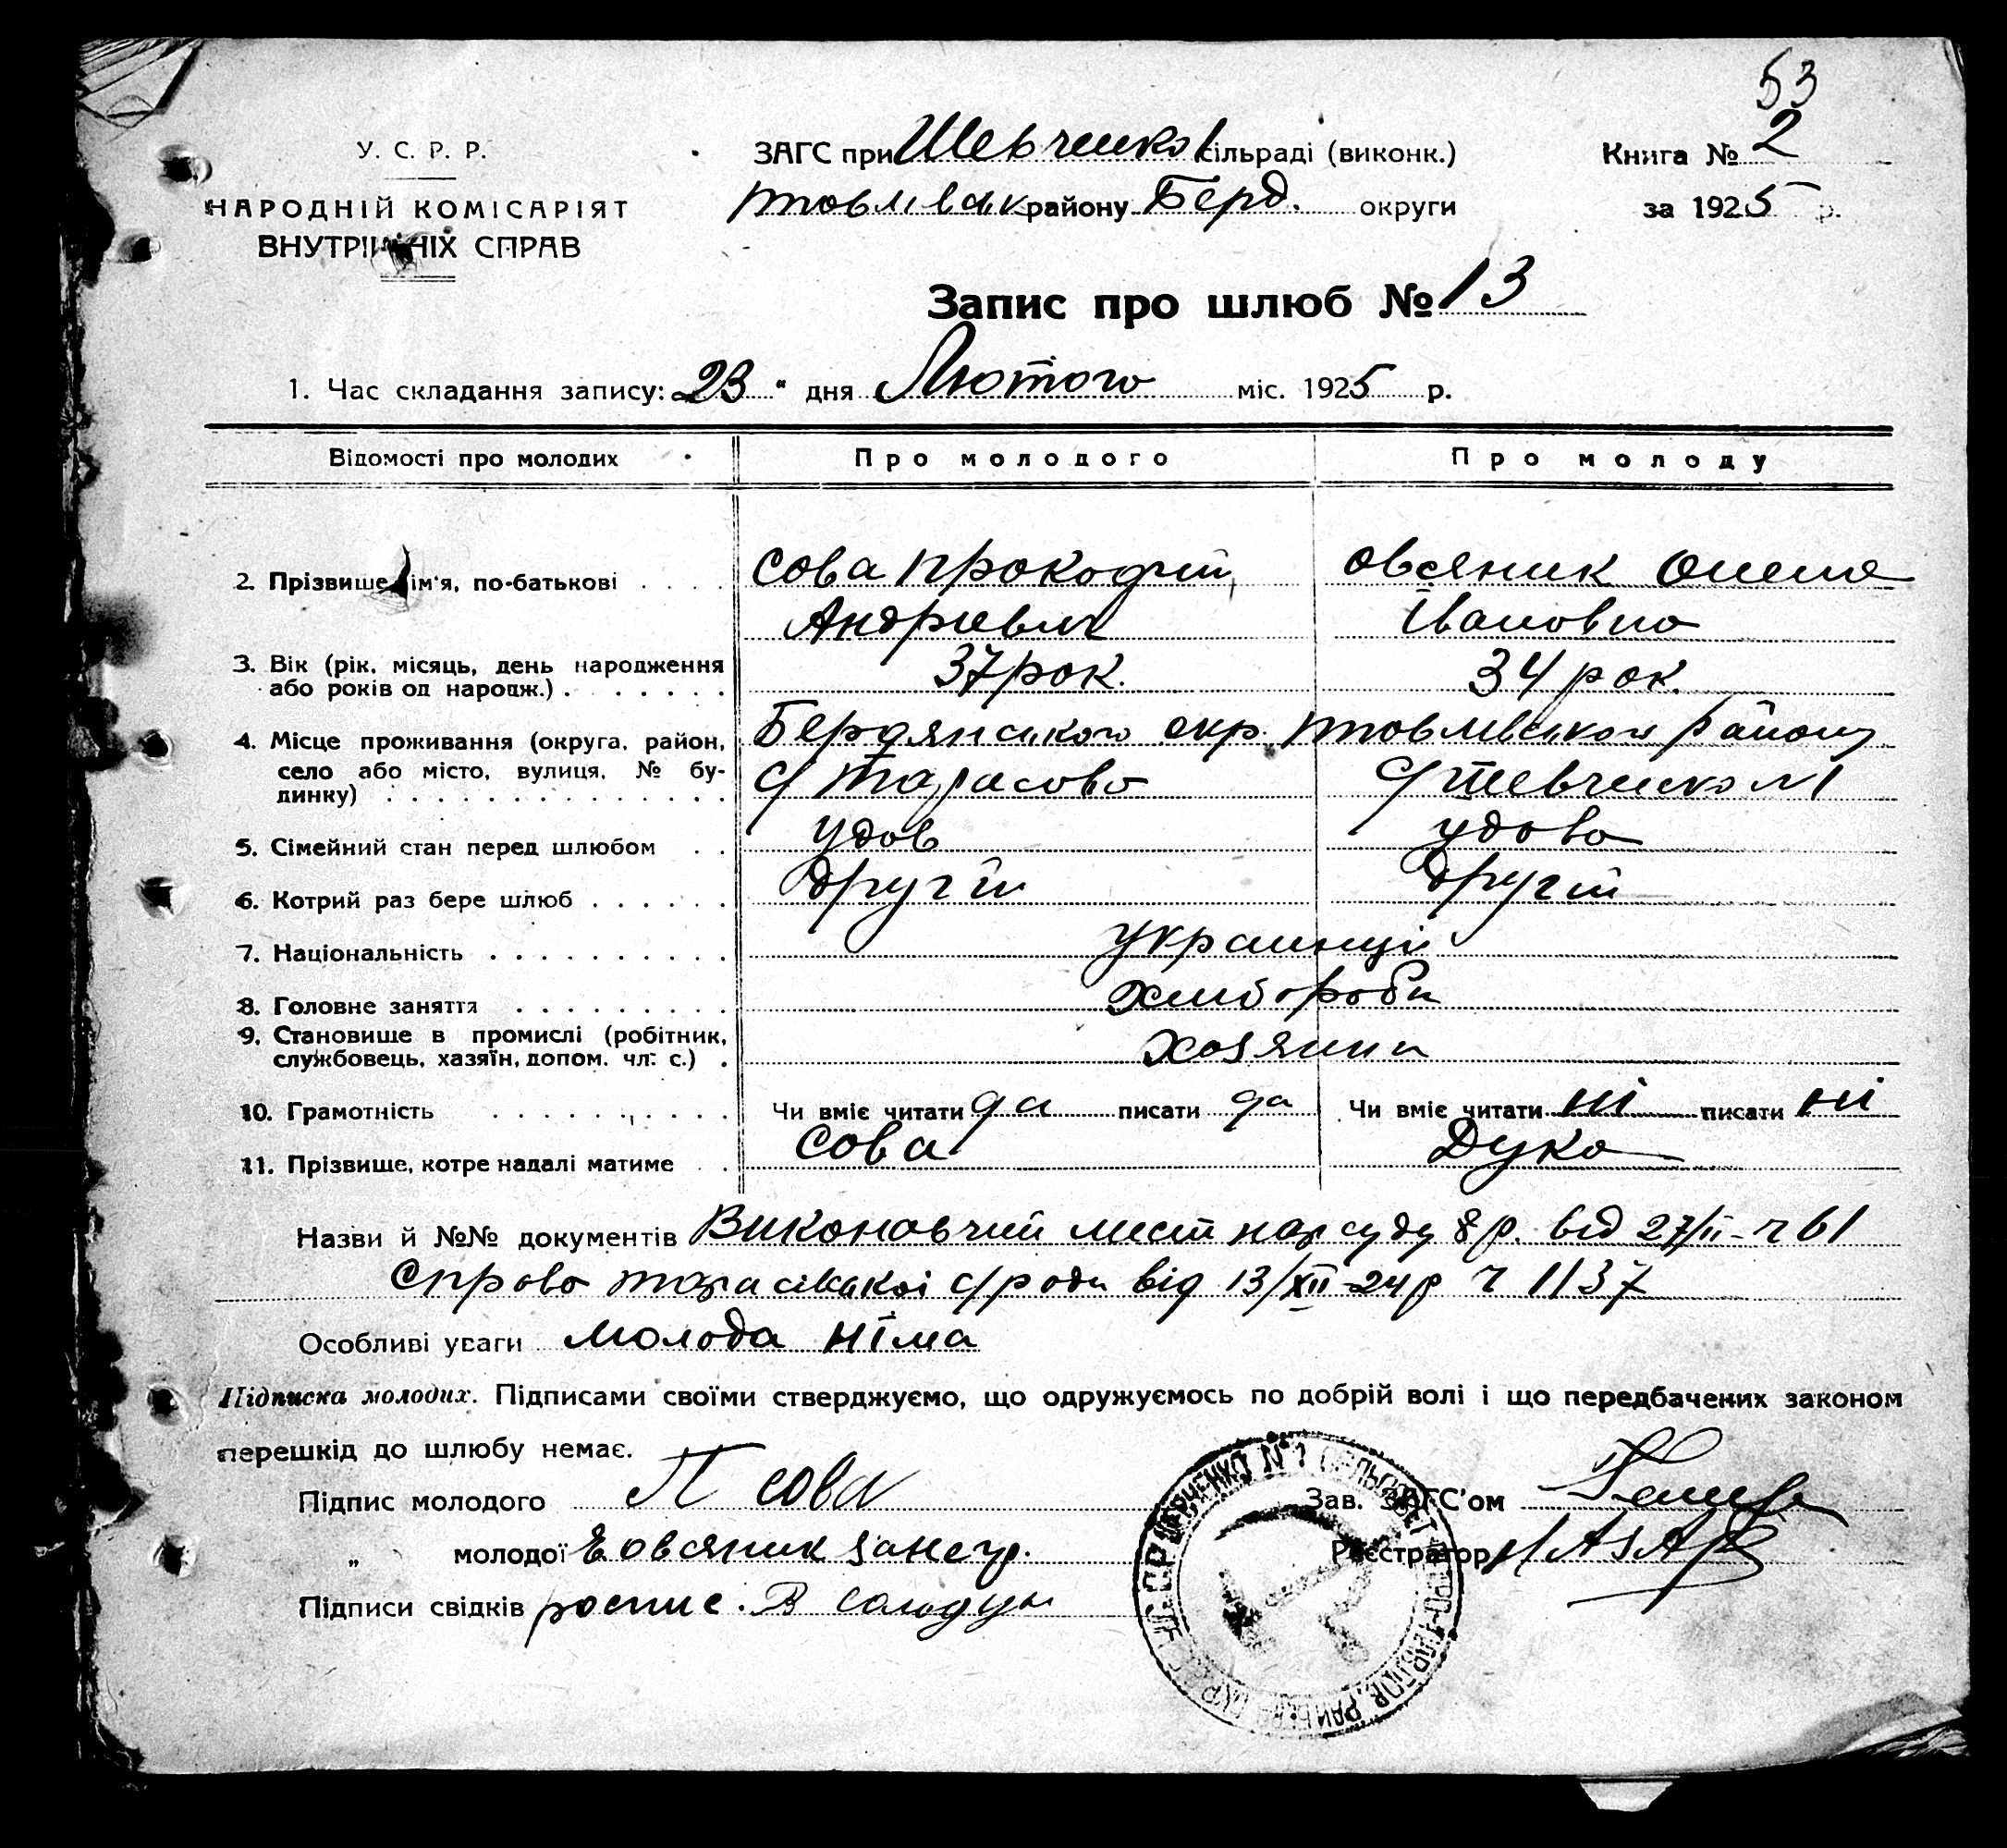 53
У. С. Р. Р.
НАРОДНІЙ КОМІСАРІЯТ
ВНУТРІШНІХ СПРАВ
ЗАГС при Шевченко 1 сільраді (виконк.)
району Берд. округи
Книга № 2
за 1925 р.
Запис про шлюб № 13
1. Час складання запису: 23 " дня Лютого міс. 1925 р.
Відомості про молодих Про молодого Про молоду
2. Прізвище, ім'я, по-батькові . . . . Сова Прокофій Овсяник Олена
Андрієвич Івановна
3. Вік (рік, місяць, день народження
або років од народж.) . . . . . . . 37 рок. 34 рок.
4. Місце проживання (округа, район,
село або місто, вулиця, № бу-
динку) . . . . . . . . . . . . . .
Бердянського окр. району
с/ Тарасово с/ Шевченко №1
5. Сімейний стан перед шлюбом . . удов удова
6. Котрий раз бере шлюб . . . . . . другій другій
7. Національність . . . . . . . . . . украинці
8. Головне заняття . . . . . . . . . хлибороби
9. Становище в промислі (робітник,
службовець, хазяїн, допом. чл. с.) . хозяини
10. Грамотність . . . . . . . . . Чи вміє читати да писати да Чи вміє читати ні писати ні
11. Прізвище, котре надалі матиме . . Сова Дука
Назви й №№ документів Виконавчий лист нар суду 8 р. від 27/II - ч 61
Справо тарасівської с/роди від 13/XII-24р ч 1137
Особливі уваги молода німа
Підписка молодих. Підписами своїми стверджуємо, що одружуємось по добрій волі і що передбачених законом
перешкід до шлюбу немає.
Підпис молодого П Сова
Зав. ЗАГС'ом
" молодої Е Овсяник
Реєстратор
Підписи свідків роспис. В Солодун
ШЕВЧЕНКО №1 СЕЛЬСОВЕТ